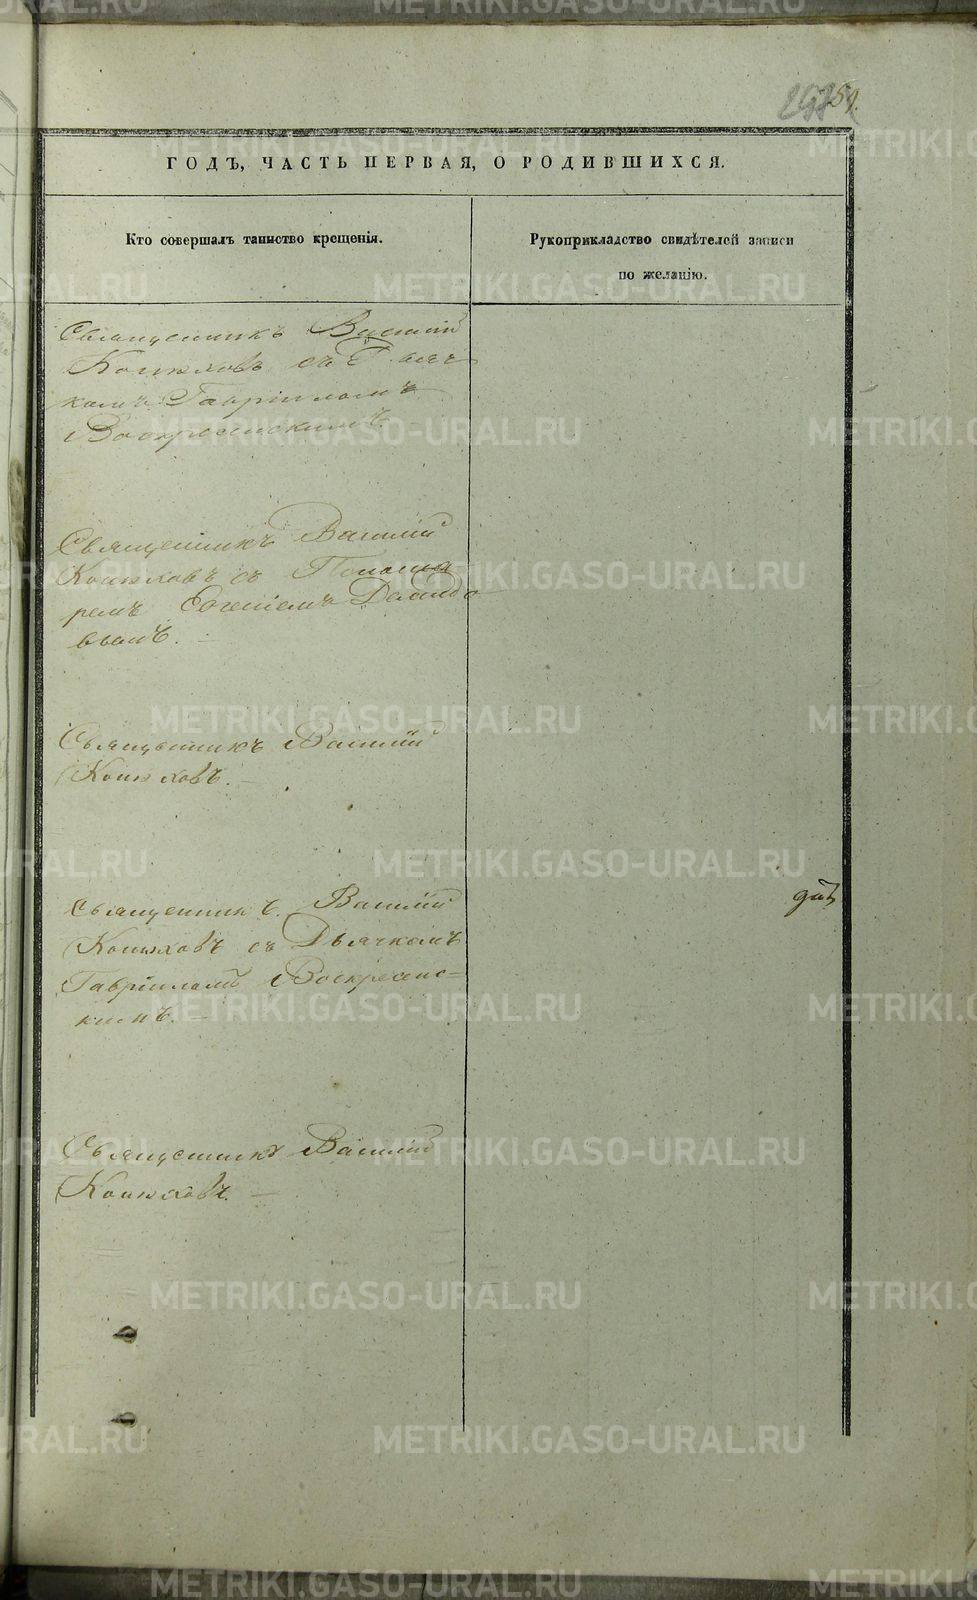 ГОДЪ, ЧАСТЬ ПЕРВАЯ, О РОДИВШИХСЯ.
Кто совершалъ таинство крещенія.
Рукоприкладство свидѣтелей записи
по желанію.
Священникъ Василій
Конюховъ съ Дьяч
комъ Гавріиломъ
Воскресенскимъ.
Священникъ Василій
Конюховъ съ Понома
ремъ Евгеніемъ
вымъ.
Священникъ Василій
Конюховъ.
Священникъ Василій
Конюховъ съ Дьячкомъ
Гавріиломъ Воскресенс-
кимъ.
Священникъ Василій
Конюховъ.
METRIKI.GASO-URAL.RU